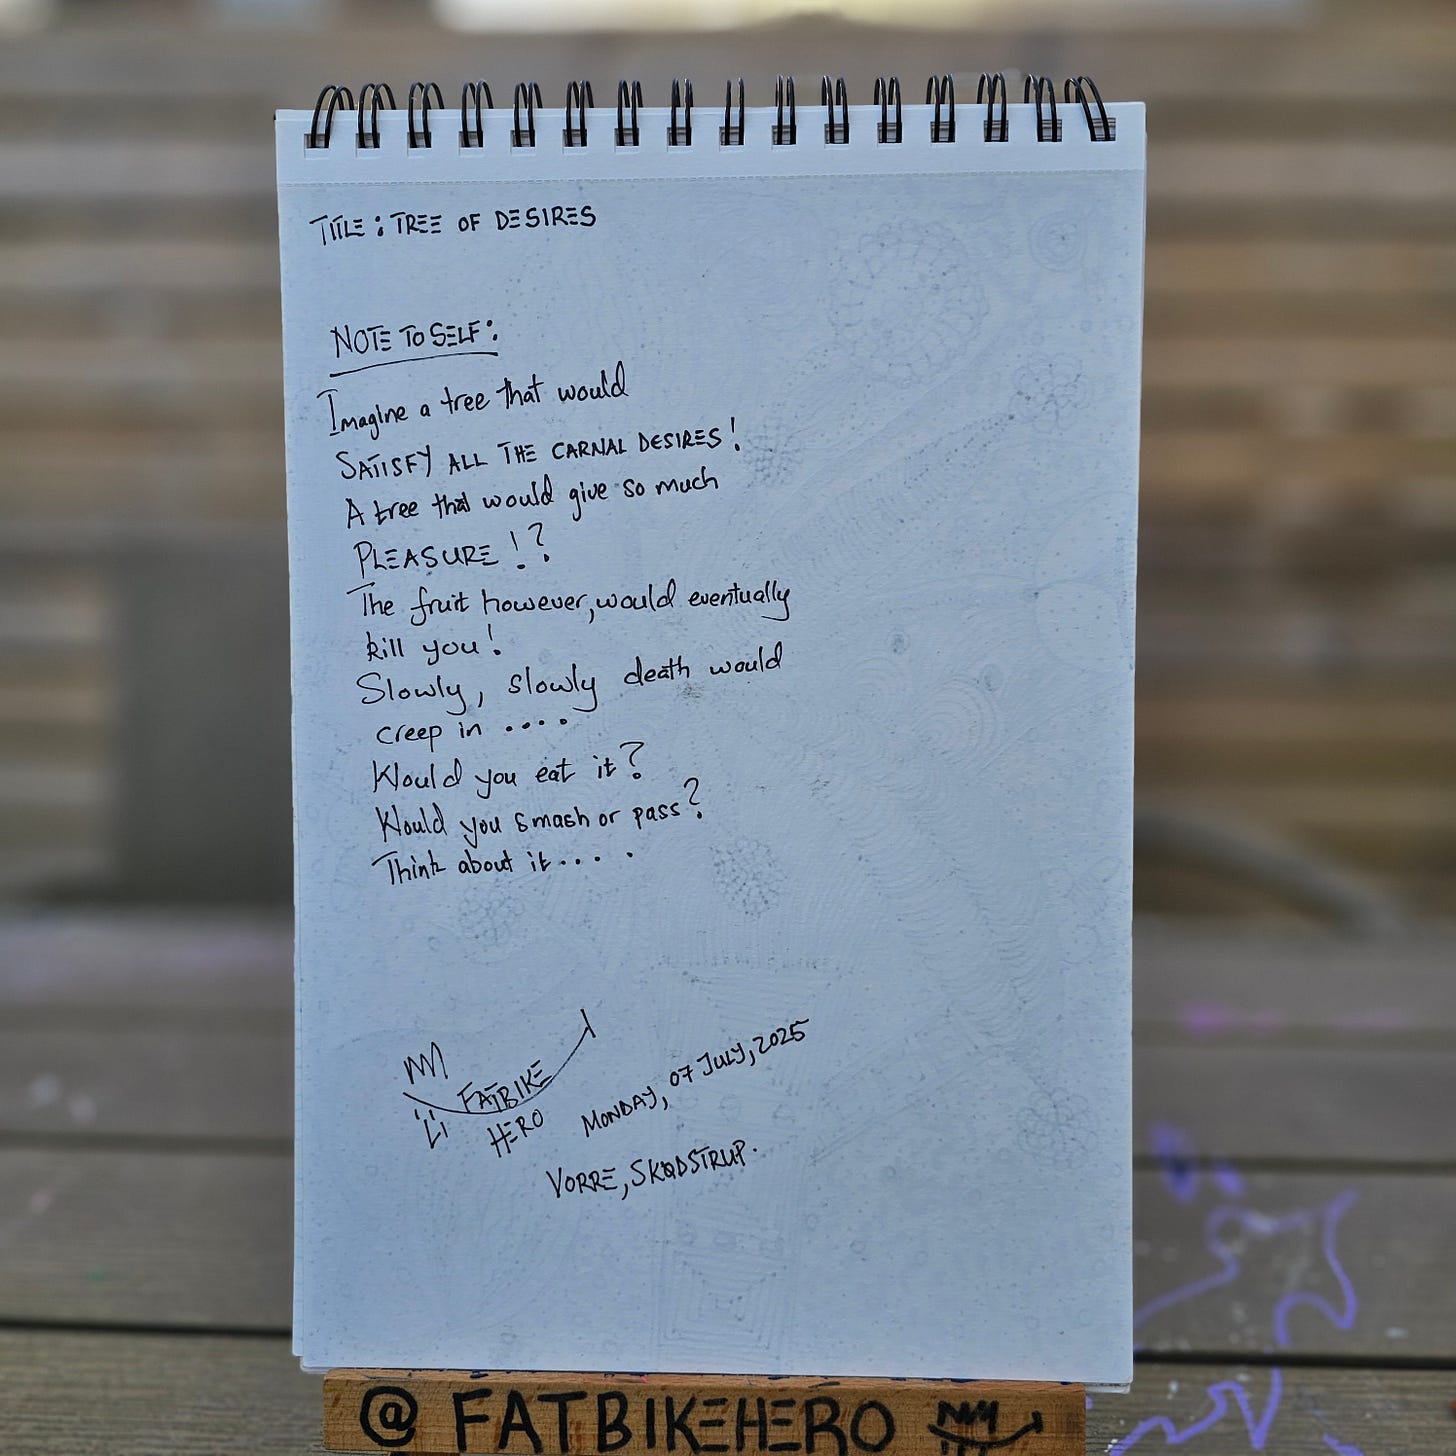 TITLE : TREE OF DESIRES
NOTE TO SELF :
Imagine a tree that would
SATISFY ALL THE CARNAL DESIRES !
A tree that would give so much
PLEASURE ! ?
The fruit however, would eventually
kill you !
Slowly, slowly death would
creep in ....
Would you eat it ?
Would you smash or pass ?
Think about it ....
FATBIKE
HERO
MONDAY, 07 JULY, 2025
VORRE, SKØDSTRUP.
@ FATBIKEHERO